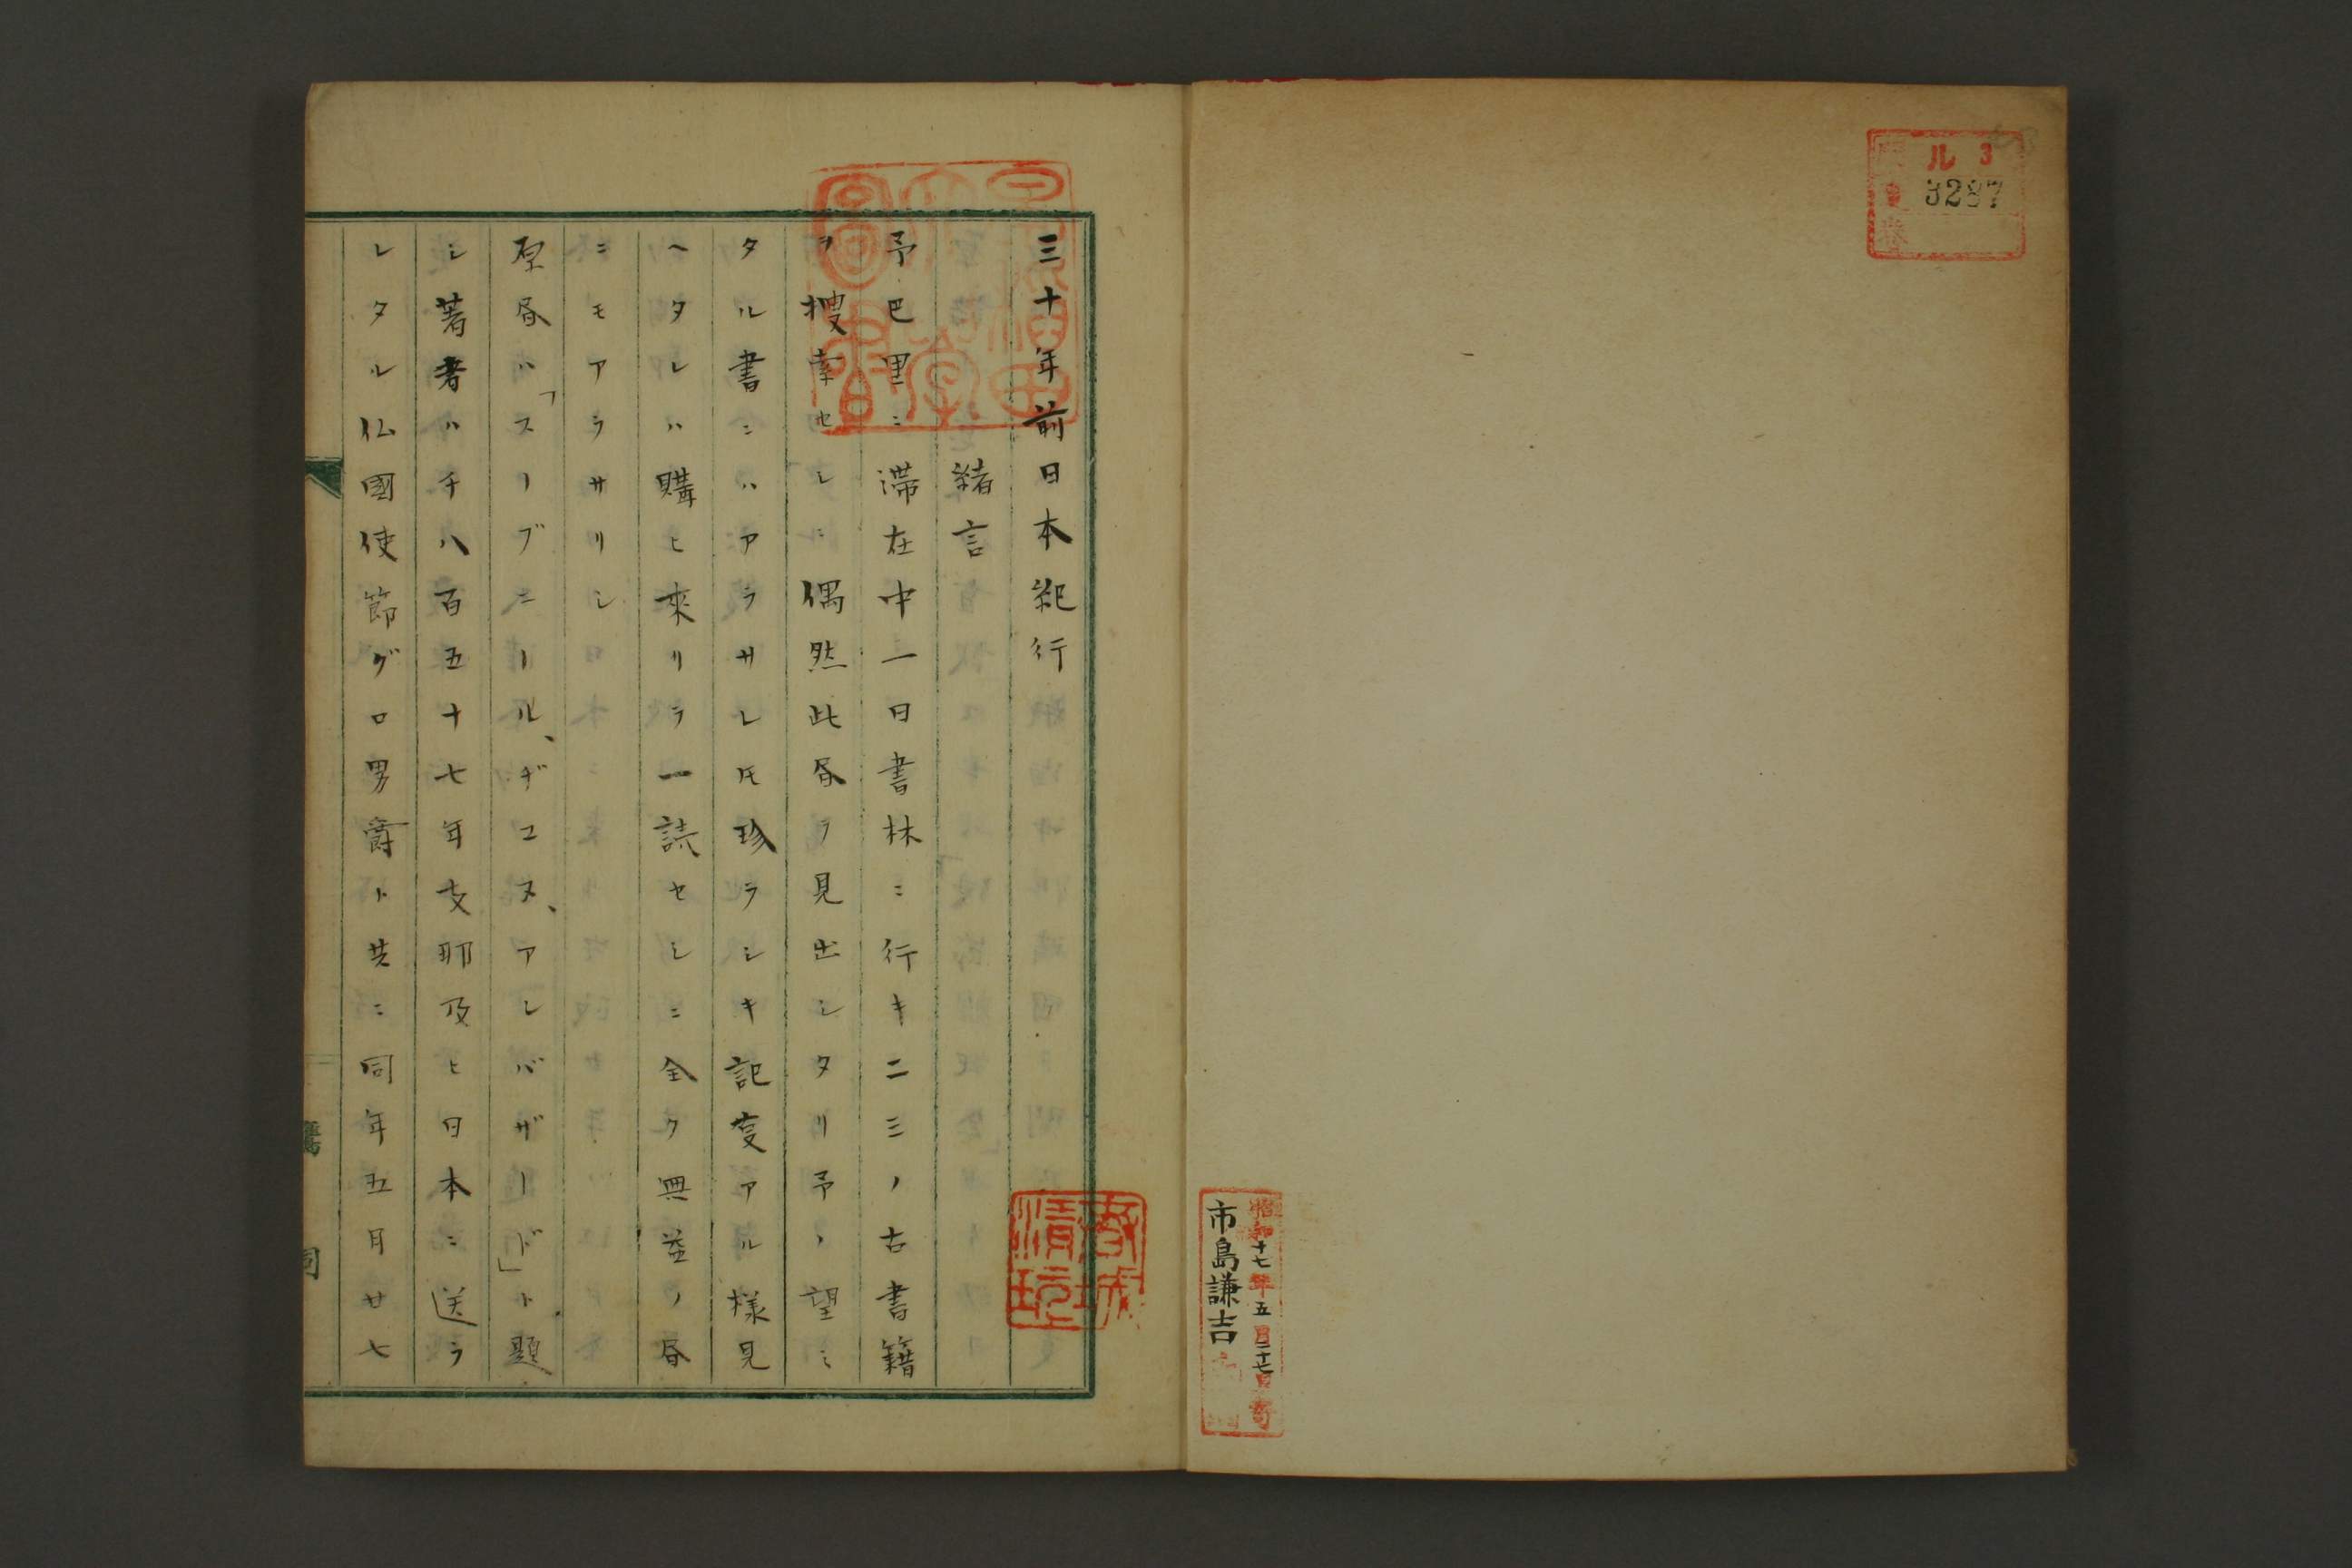 ル 3
3287
門
號
巻
昭和十七年五月二十七日寄
市島謙吉
三十年前日本紀行
緒言
予巴里ニ滞在中一日書林ニ行キ二三ノ古書籍
ヲ捜索セシニ偶然此昏ヲ見出シタリ予ノ望ミ
タル書ニハアラサレ𪜈珍ラシキ記㕝アル様見
ヘタレハ購ヒ來リラ一読セシニ全ク無益ノ昏
ニモアラサリシ
原昏ハ「スーブニール、ヂユヌ、アレバザード」ト題
シ著者ハ千八百五十七年支那及ヒ日本ニ送ラ
レタル仏國使節グロ男爵ト共ニ同年五月廿七
春城
清玩